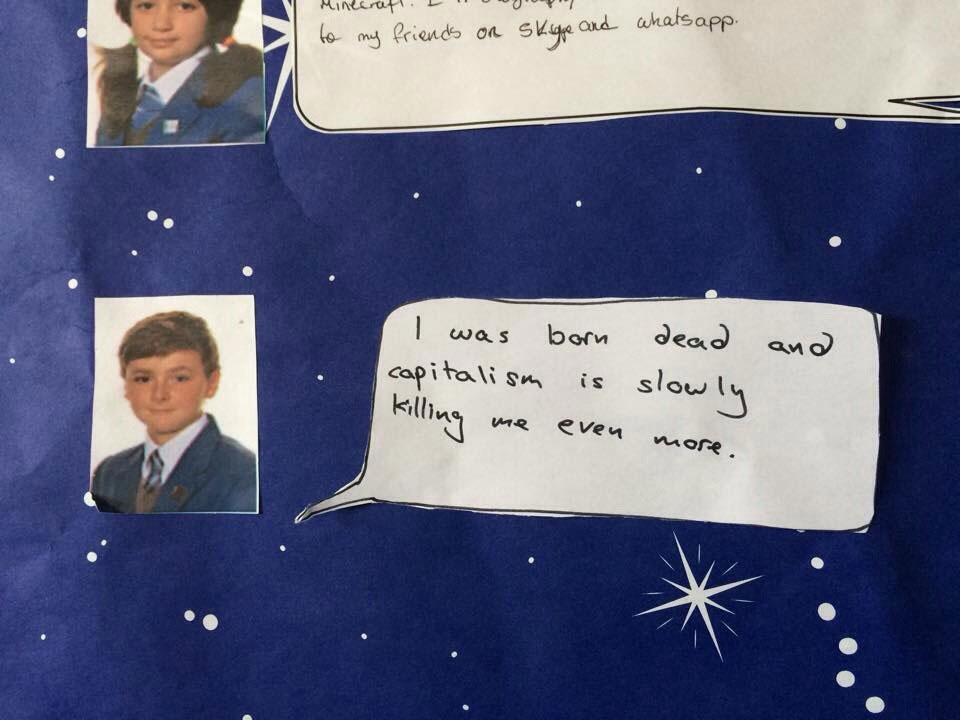 Minecraft. I
to my friends on Skype and whatsapp.
I was born dead and
capitalism is slowly
killing me even more.